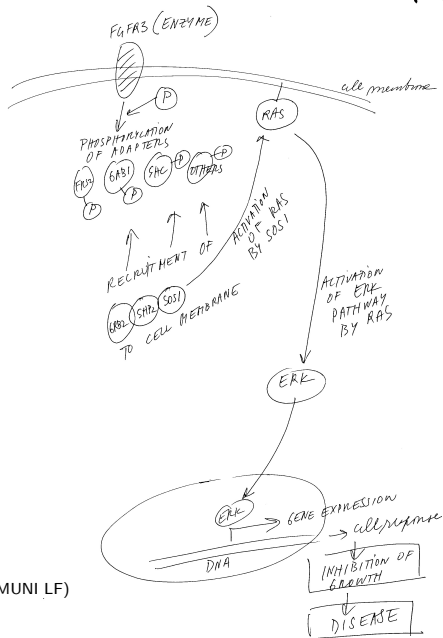 FGFR3 (ENZYME)
P
cell membrane
RAS
PHOSPHORYLATION
OF ADAPTERS
FRS2
GAB1
SHC
OTHERS
P
P
P
P
RECRUITMENT OF
GRB2
SHP2
SOS1
TO CELL MEMBRANE
ACTIVATION
OF RAS
BY SOS1
ACTIVATION
OF ERK
PATHWAY
BY RAS
ERK
ERK
GENE EXPRESSION
DNA
cell response
INHIBITION OF
GROWTH
DISEASE
MUNI LF)